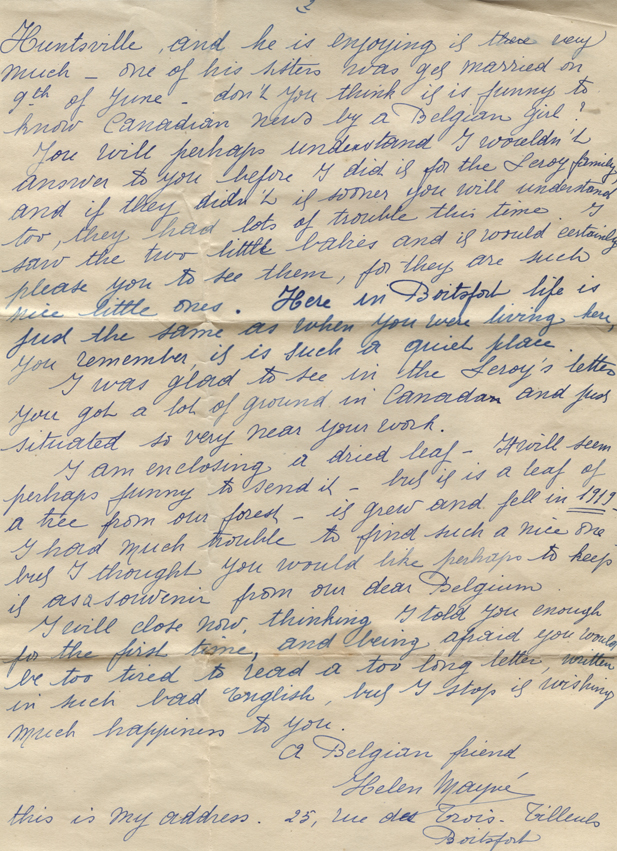 2
Huntsville, and he is enjoying it there very
much - one of his sisters was get married on
9th of June - don't you think it is funny to
know Canadian news by a Belgian girl?
You will perhaps understand I wouldn't
answer to you before I did it for the Leroy family,
and if they didn't it sooner you will understand
too, they had lots of trouble this time. I
saw the two little babies and it would certainly
please you to see them, for they are such
nice little ones. Here in Boitsfort life is
just the same as when you were living here,
you remember, it is such a quiet place.
I was glad to see in the Leroy's letter
you got a lot of ground in Canadan and just
situated so very near your work.
I am enclosing a dried leaf - It will seem
perhaps funny to send it - but it is a leaf of
a tree from our forest - it grew and fell in 1919 -
I had much trouble to find such a nice one
but I thought you would like perhaps to keep
it as a souvenir from our dear Belgium.
I will close now, thinking I told you enough
for the first time, and being afraid you would
be too tired to read a too long letter, written
in such bad English, but I stop it wishing
much happiness to you.
A Belgian friend
Helen Mayné
this is my address. 25, rue des Trois-Tilleuls
Boitsfort